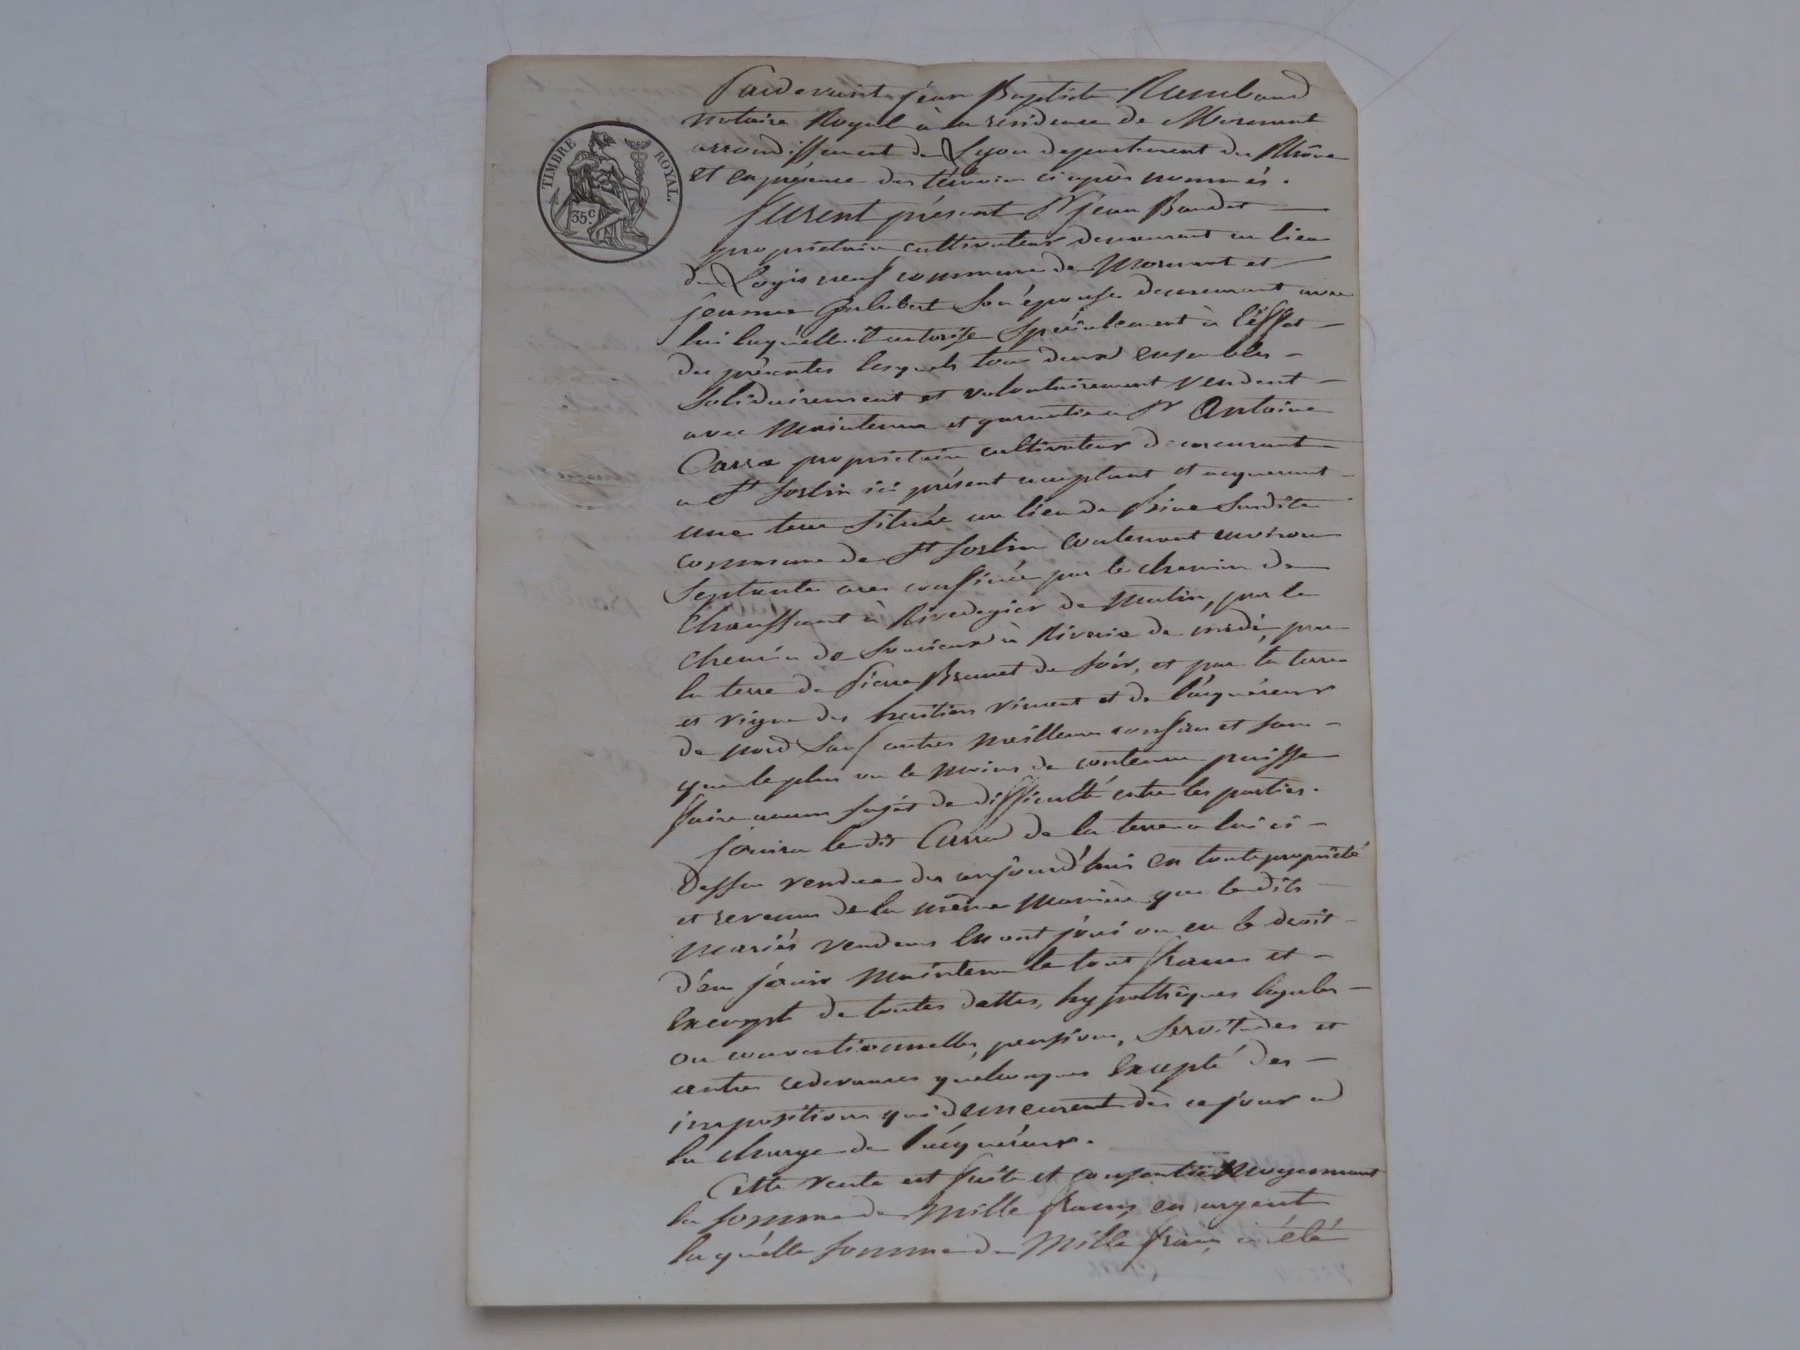 TIMBRE ROYAL
35 c.
Pardevant jean Baptiste Rambaud
notaire Royal à la résidence de Mornant
arrondissement de Lyon departement du Rhône
et en présence des témoins ci après nommés.
furent présent Sr jean Baudet
propriétaire cultivateur demeurant au lieu
du Logis neuf commune de Mornant et
jeanne Galubert son épouse demeurant avec
lui laquelle il autorise spécialement à l'effet
des présentes lesquels tous deux ensembles
solidairement et volontairement vendent
avec maintenue et garantie a Sr Antoine
Carra propriétaire cultivateur demeurant
a St Sorlin ici présent acceptant et acquerant
une terre située au lieu de susdite
commune de St Sorlin contenant environ
septante ares confinée par le chemin de
Chaussant à Rivedegier de matin, par le
chemin de à Riverie de midi, par
la terre de Pierre Brunet de soir, et par la terre
et vigne des heritiers vincent et de l'acquéreur
de nord sauf autres meilleurs confins et sans
que le plus ou le moins de contenue puisse
faire aucun sujet de difficulté entre les parties.
jouira le dit Carra de la terre a lui ci
dessus vendue dès aujourd'hui en toute propriété
et revenus de la même manière que les dits
mariés vendeurs en ont joui ou eu le droit
d'en jouir maintenu le tout franc et
exempt de toutes dettes, hypothèques legales
ou conventionnelles, pensions, servitudes et
autres redevances quelconques excepté des
impositions qui demeurent dès ce jour a
la charge de l'acquéreur.
Cette vente est faite et consentie moyennant
la somme de mille francs en argent
laquelle somme de mille francs a été